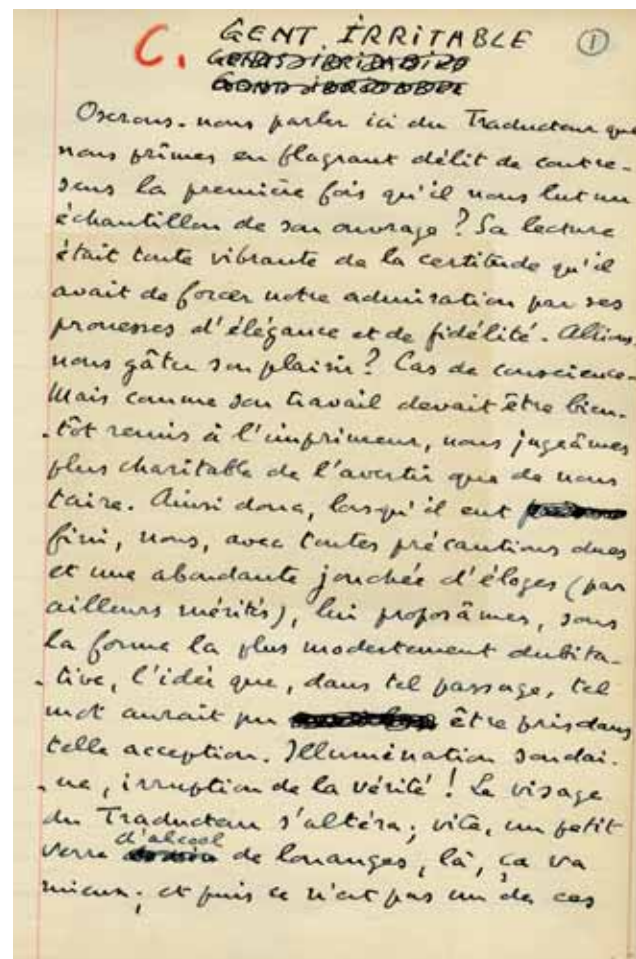 C. GENT IRRITABLE 1
Oserons-nous parler ici du Traducteur que
nous prîmes en flagrant délit de contre-
sens la première fois qu'il nous lut un
échantillon de son ouvrage ? Sa lecture
était toute vibrante de la certitude qu'il
avait de forcer notre admiration par ses
prouesses d'élégance et de fidélité. Allions-
nous gâter son plaisir ? Cas de conscience.
Mais comme son travail devait être bien-
-tôt remis à l'imprimeur, nous jugeâmes
plus charitable de l'avertir que de nous
taire. Ainsi donc, lorsqu'il eut
fini, nous, avec toutes précautions dues
et une abondante jonchée d'éloges (par
ailleurs mérités), lui proposâmes, sous
la forme la plus modestement dubita-
-tive, l'idée que, dans tel passage, tel
mot aurait pu être pris dans
telle acception. Illumination soudai-
-ne, irruption de la vérité ! Le visage
du Traducteur s'altéra ; vite, un petit
d'alcool
verre de louanges, là, ça va
mieux ; et puis ce n'est pas un de ces